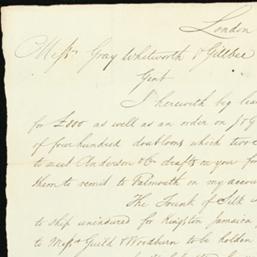 London
Messrs. Gray Whitworth & Gillbee
Gent
I herewith beg leav
for £200 as well as an order on J & G
of four hundred doubloons which two
to meet Anderson & Co drafts on your fo
them to remit to Falmouth on my accou
The Trunk of Silk
to ship uninsured for Kingston Jamaica
to Messrs Guild & Woodburn to be holden